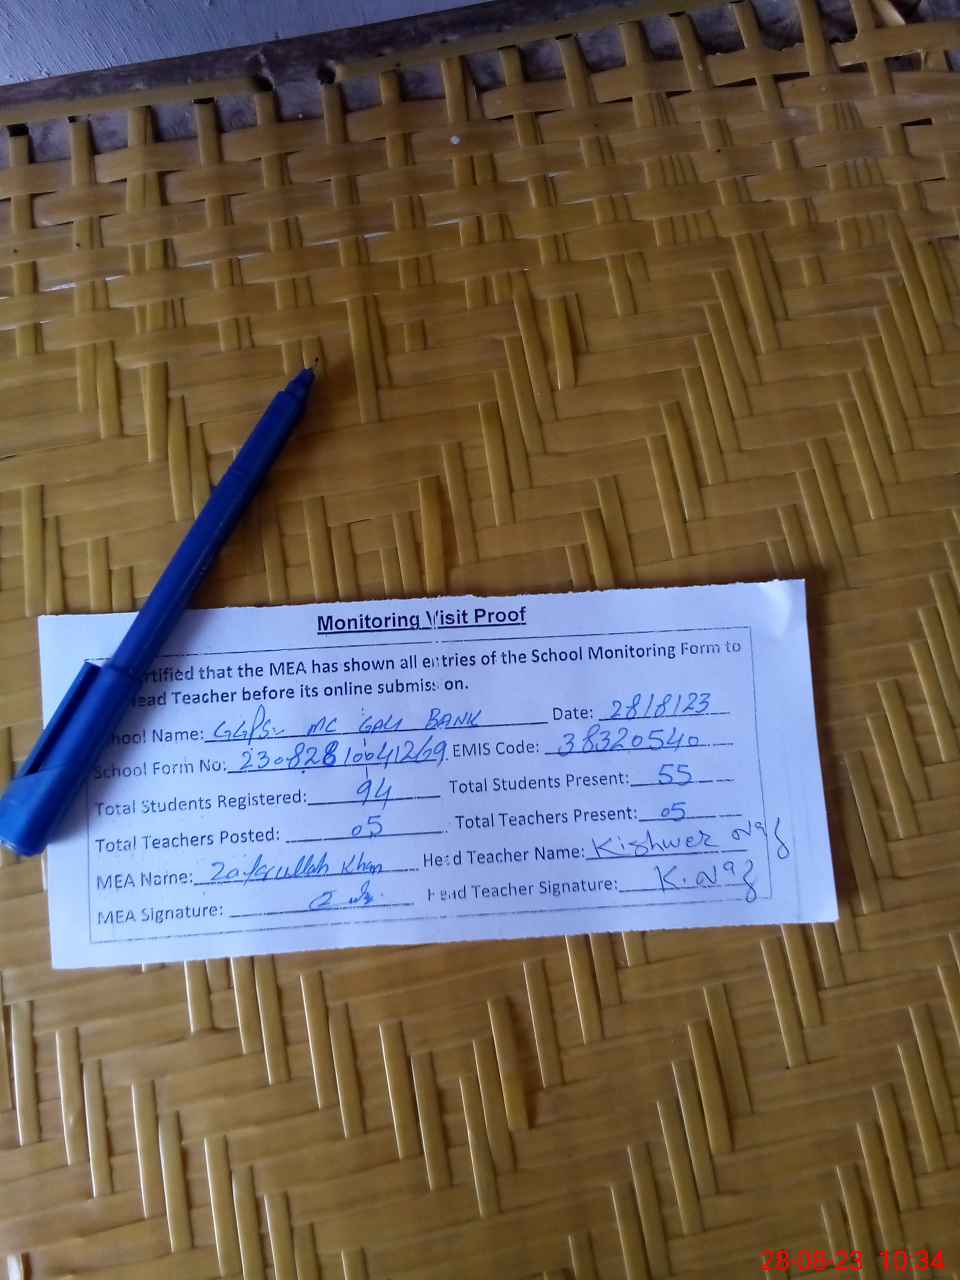 Monitoring Visit Proof
rtified that the MEA has shown all entries of the School Monitoring Form to
ead Teacher before its online submission.
hool Name: GGPS MC GALI BANK Date: 28/8/23
School Form No: 23082810041269 EMIS Code: 38320540
Total Students Registered: 94 Total Students Present: 55
Total Teachers Posted: 05 Total Teachers Present: 05
MEA Name: Zafarullah Khan Head Teacher Name: Kishwer Naz
MEA Signature: Head Teacher Signature: K. Naz
28-08-23 10:34